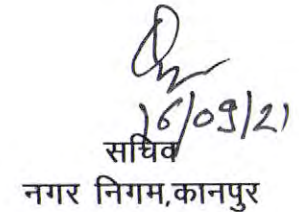 16/09/21
सचिव
नगर निगम,कानपुर